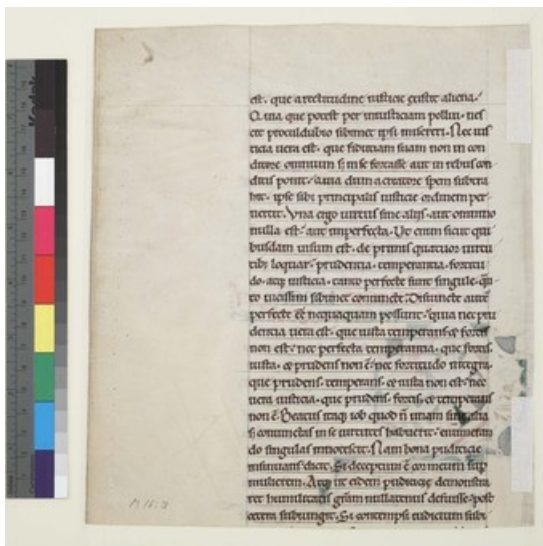 est. que a rectitudine iusticie existit aliena.
Quia que potest per iniusticiam pollui. nes
cit proculdubio sibimet ipsi misereri. Nec ius
ticia uera est. que fiduciam suam non in con
ditore omnium s; in se forcasse aut in rebus con
ditis ponit. Quia dum a creatore spem subtra
hit. ipse sibi principalis iusticie ordinem per
uertit. Vna ergo uirtus sine aliis. aut omnino
nulla est. aut imperfecta. Vt enim sicut qui
busdam uisum est. de primis quatuor uirtu
tib; loquar. prudencia. temperancia. fortitu
do. atq; iusticia. tanto perfecte sunt singule. q̄n
to uicissim sibimet coniuncte. Disiuncte autē
perfecte eē nequaquam possunt. quia nec pru
dencia uera est. que iusta temperans & fortis
non est. nec perfecta temperancia. que fortis.
iusta. & prudens non ē. nec fortitudo integra.
que prudens. temperans. & iusta non est. nec
uera iusticia. que prudens. fortis. & temperans
non ē. Beatus itaq; iob quod ñ unam singula
s; coniunctas in se uirtutes habuerit. enumeran
do singulas innotescit. Nam bona pudicicie
insinuans dicit. Si deceptum ē cor meum sup
mulierem. Atq; ut eidem pudicicie demonstra
ret humilitatis grām nullatenus defuisse. post
cetera subiungit. Si contempsi iudicium subi-
M 11:8
Kodak